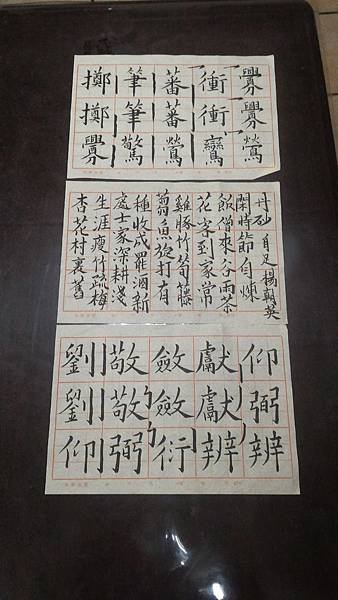 擲擲釁
筆筆驚
蕃蕃鶯
衝衝鸞
釁釁鶯
杏花村裏舊
生涯瘦竹疏梅
處士家深耕淺
種收成罷酒新
篘魚旋打有
雞豚竹筍藤
花客到家常
飯僧來谷雨茶
閑時節自煉
丹砂 自足 楊朝英
劉劉仰
敬敬弼
斂斂衍
獻獻辨
仰弼辨